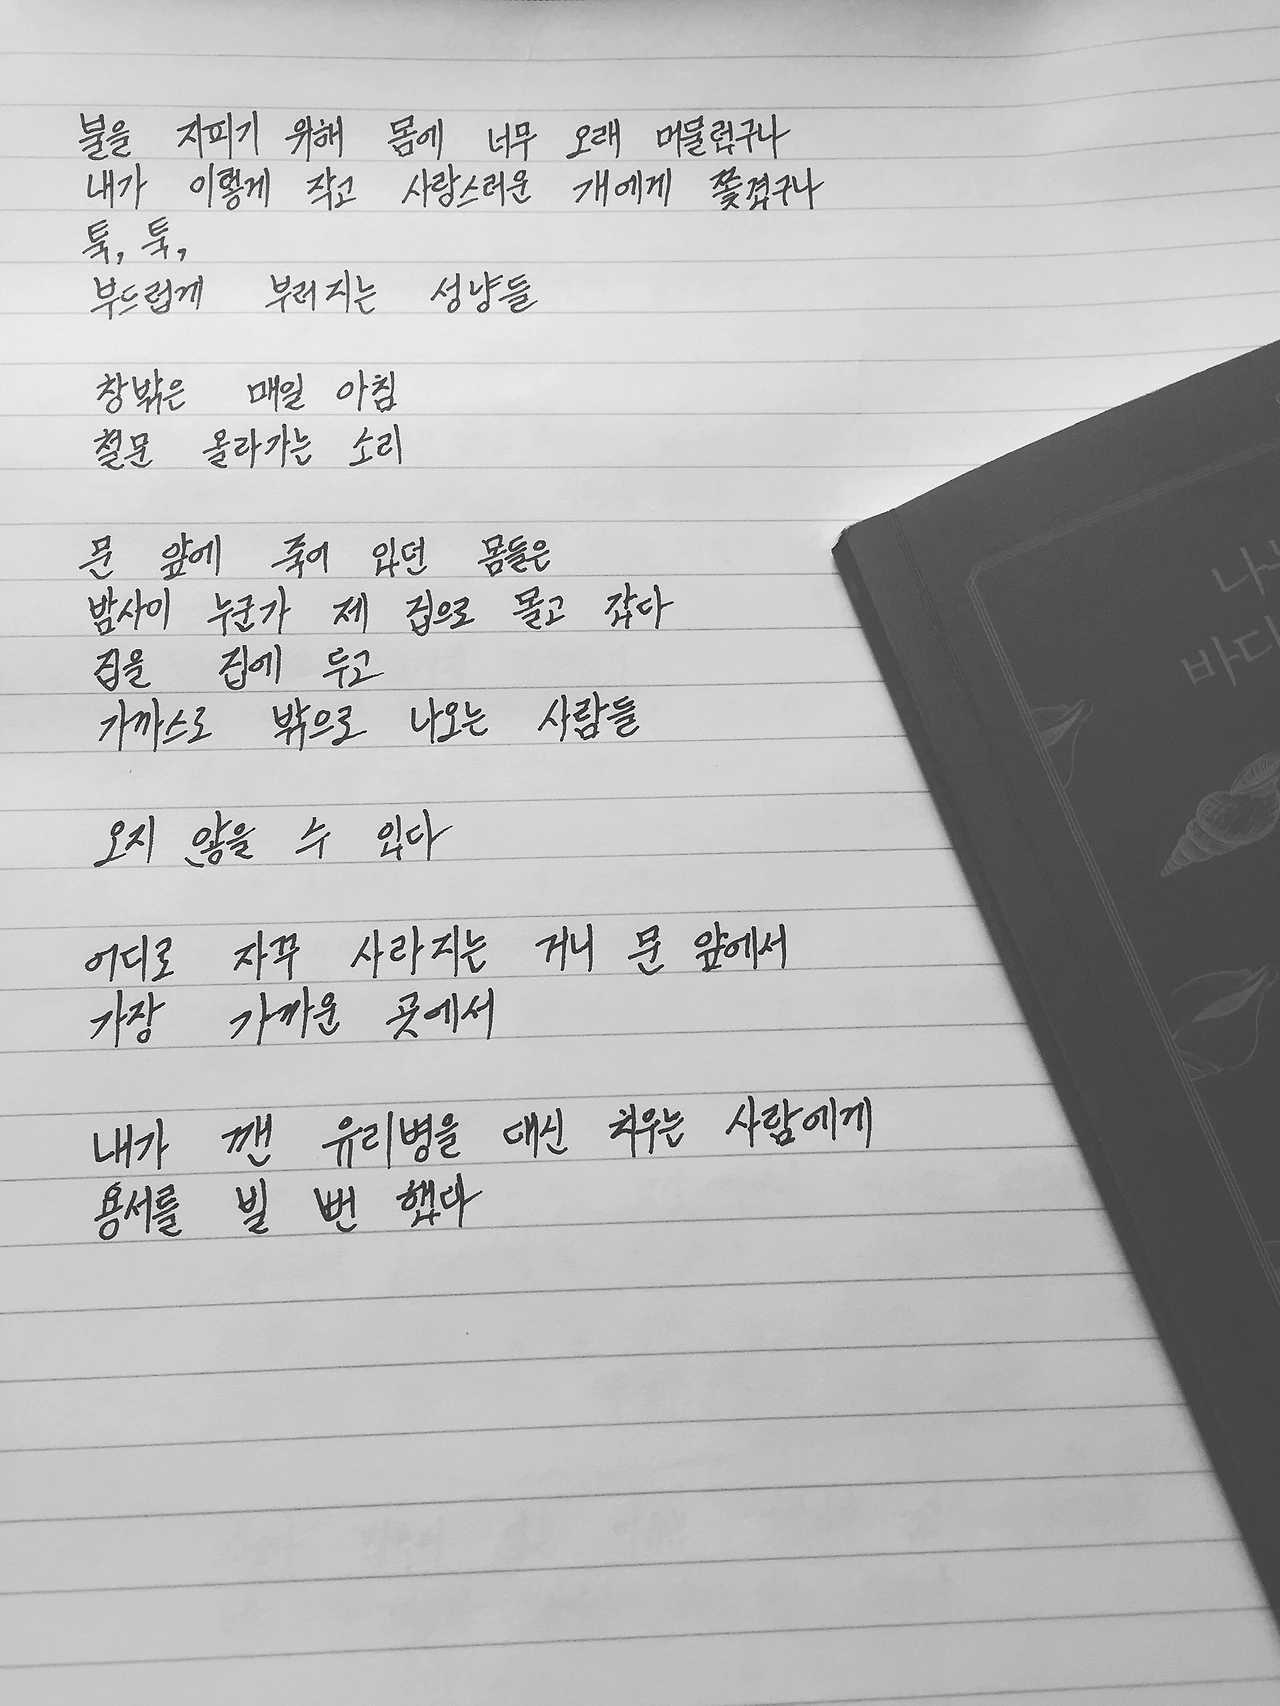 불을 지피기 위해 몸에 너무 오래 머물렀구나
내가 이렇게 작고 사랑스러운 개에게 쫓겼구나
툭, 툭,
부드럽게 부러지는 성냥들
창밖은 매일 아침
철문 올라가는 소리
문 앞에 죽어 있던 몸들은
밤사이 누군가 제 집으로 몰고 갔다
집을 집에 두고
가까스로 밖으로 나오는 사람들
오지 않을 수 있다
어디로 자꾸 사라지는 거니 문 앞에서
가장 가까운 곳에서
내가 깬 유리병을 대신 치우는 사람에게
용서를 빌 뻔 했다
바다